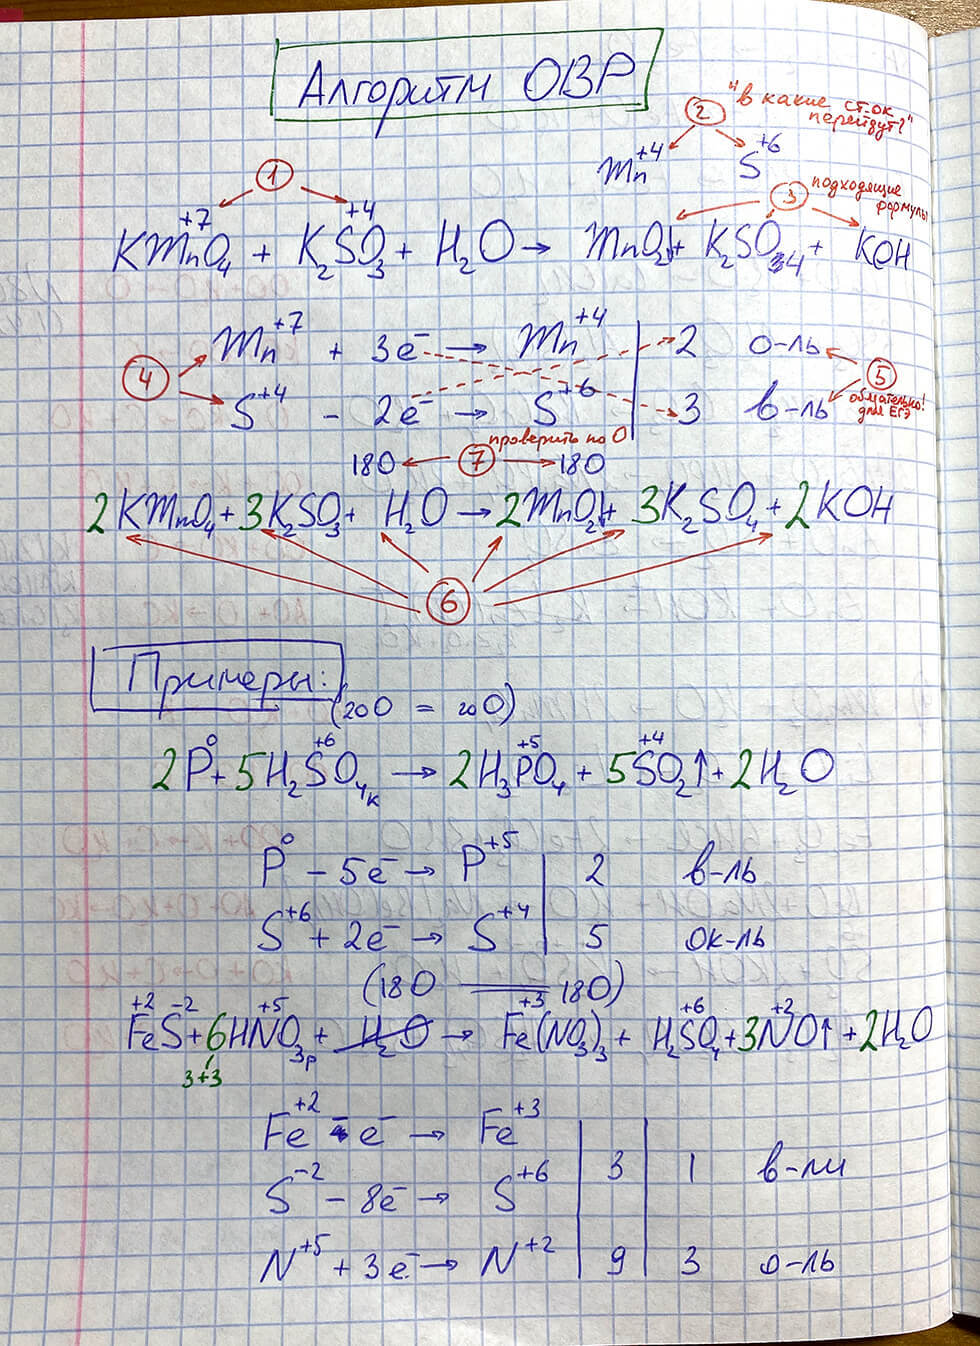 Алгоритм ОВР
② "в какие ст.ок перейдут?"
Mn⁺⁴ S⁺⁶
① ③ подходящие формулы
+7 +4
KMnO₄ + K₂SO₃ + H₂O → MnO₂↓ + K₂SO₄ + KOH
④ Mn⁺⁷ + 3e⁻ → Mn⁺⁴ | 2 о-ль
S⁺⁴ - 2e⁻ → S⁺⁶ | 3 в-ль
⑤ обязательно! для ЕГЭ
проверить по O
18O ← ⑦ → 18O
2KMnO₄ + 3K₂SO₃ + H₂O → 2MnO₂↓ + 3K₂SO₄ + 2KOH
⑥
Примеры:
(20O = 20O)
0 +6 +5 +4
2P + 5H₂SO₄к → 2H₃PO₄ + 5SO₂↑ + 2H₂O
P⁰ - 5e⁻ → P⁺⁵ | 2 в-ль
S⁺⁶ + 2e⁻ → S⁺⁴ | 5 ок-ль
(18O = 18O)
+2 -2 +5 +3 +6 +2
FeS + 6HNO₃р + H₂O → Fe(NO₃)₃ + H₂SO₄ + 3NO↑ + 2H₂O
3+3
Fe⁺² - e⁻ → Fe⁺³
S⁻² - 8e⁻ → S⁺⁶ | 3 | 1 в-ли
N⁺⁵ + 3e⁻ → N⁺² | 9 | 3 о-ль